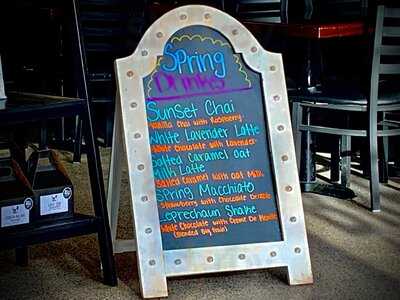 Spring
Drinks
Sunset Chai
Vanilla Chai with Raspberry
White Lavender Latte
White Chocolate with Lavender
Salted Caramel Oat
Milk Latte
Salted Caramel with Oat Milk
Spring Macchiato
Strawberry with Chocolate Drizzle
Leprechaun Shake
White Chocolate with Creme De Menthe
(Blended Big Train)